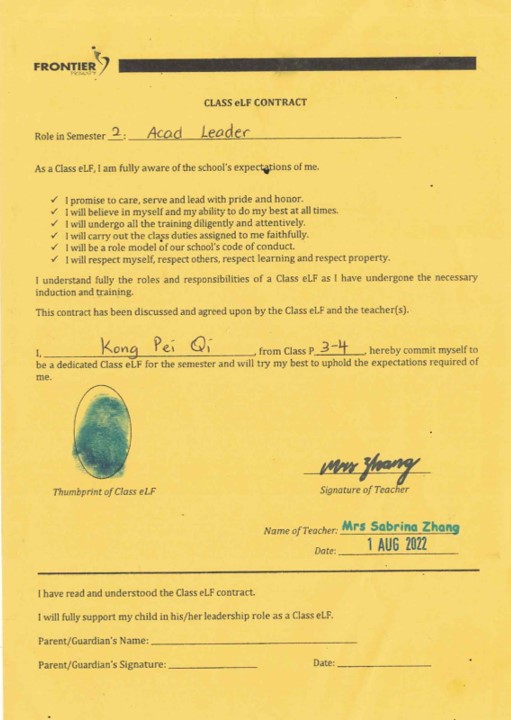 FRONTIER
PRIMARY
CLASS eLF CONTRACT
Role in Semester 2: Acad Leader
As a Class eLF, I am fully aware of the school's expectations of me.
✓ I promise to care, serve and lead with pride and honor.
✓ I will believe in myself and my ability to do my best at all times.
✓ I will undergo all the training diligently and attentively.
✓ I will carry out the class duties assigned to me faithfully.
✓ I will be a role model of our school's code of conduct.
✓ I will respect myself, respect others, respect learning and respect property.
I understand fully the roles and responsibilities of a Class eLF as I have undergone the necessary
induction and training.
This contract has been discussed and agreed upon by the Class eLF and the teacher(s).
I, Kong Pei Qi, from Class P 3-4, hereby commit myself to
be a dedicated Class eLF for the semester and will try my best to uphold the expectations required of
me.
Mrs Zhang
Thumbprint of Class eLF
Signature of Teacher
Name of Teacher: Mrs Sabrina Zhang
Date: 1 AUG 2022
I have read and understood the Class eLF contract.
I will fully support my child in his/her leadership role as a Class eLF.
Parent/Guardian's Name:
Parent/Guardian's Signature: Date: